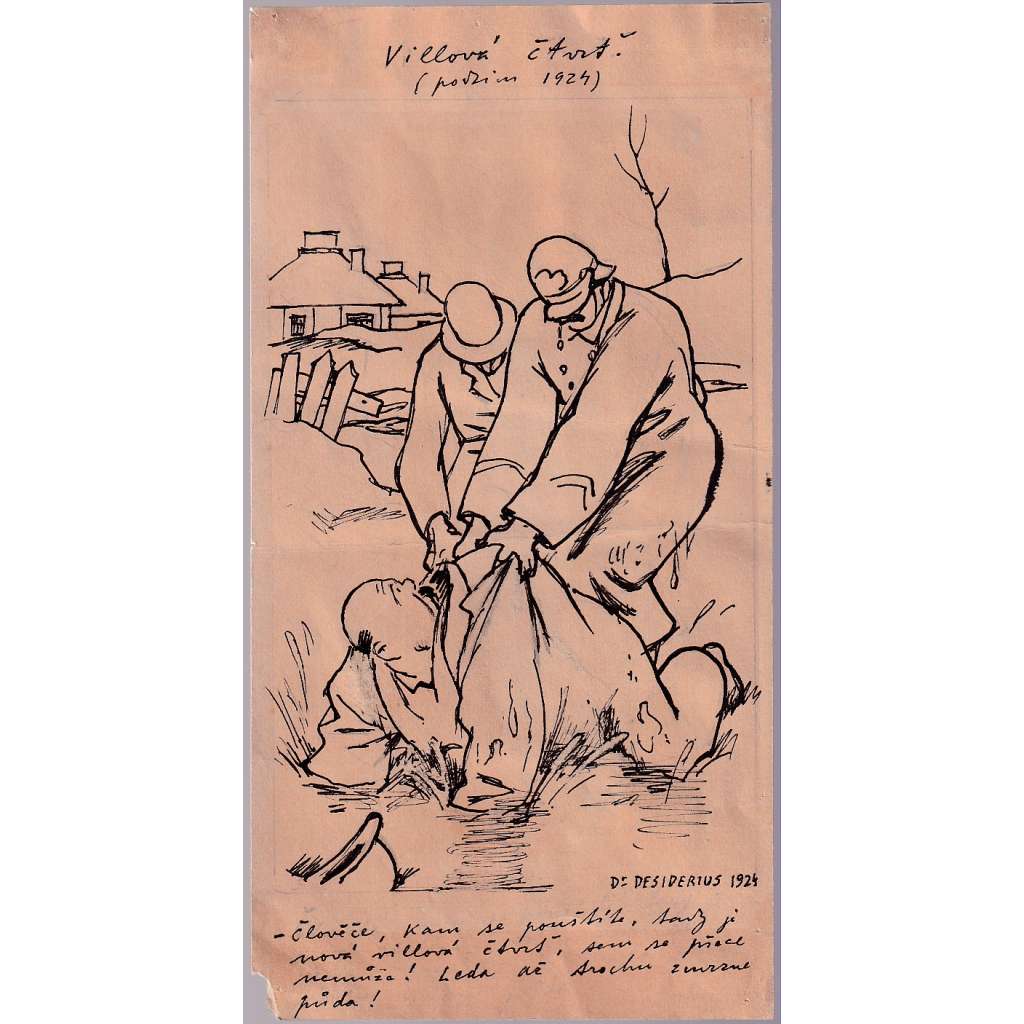 Villová čtvrť.
(podzim 1924)
Dr DESIDERIUS 1924
- Člověče, kam se pouštíte, tady je
nová villová čtvrť, sem se přece
nemůže! Leda až trochu zmrzne
půda!